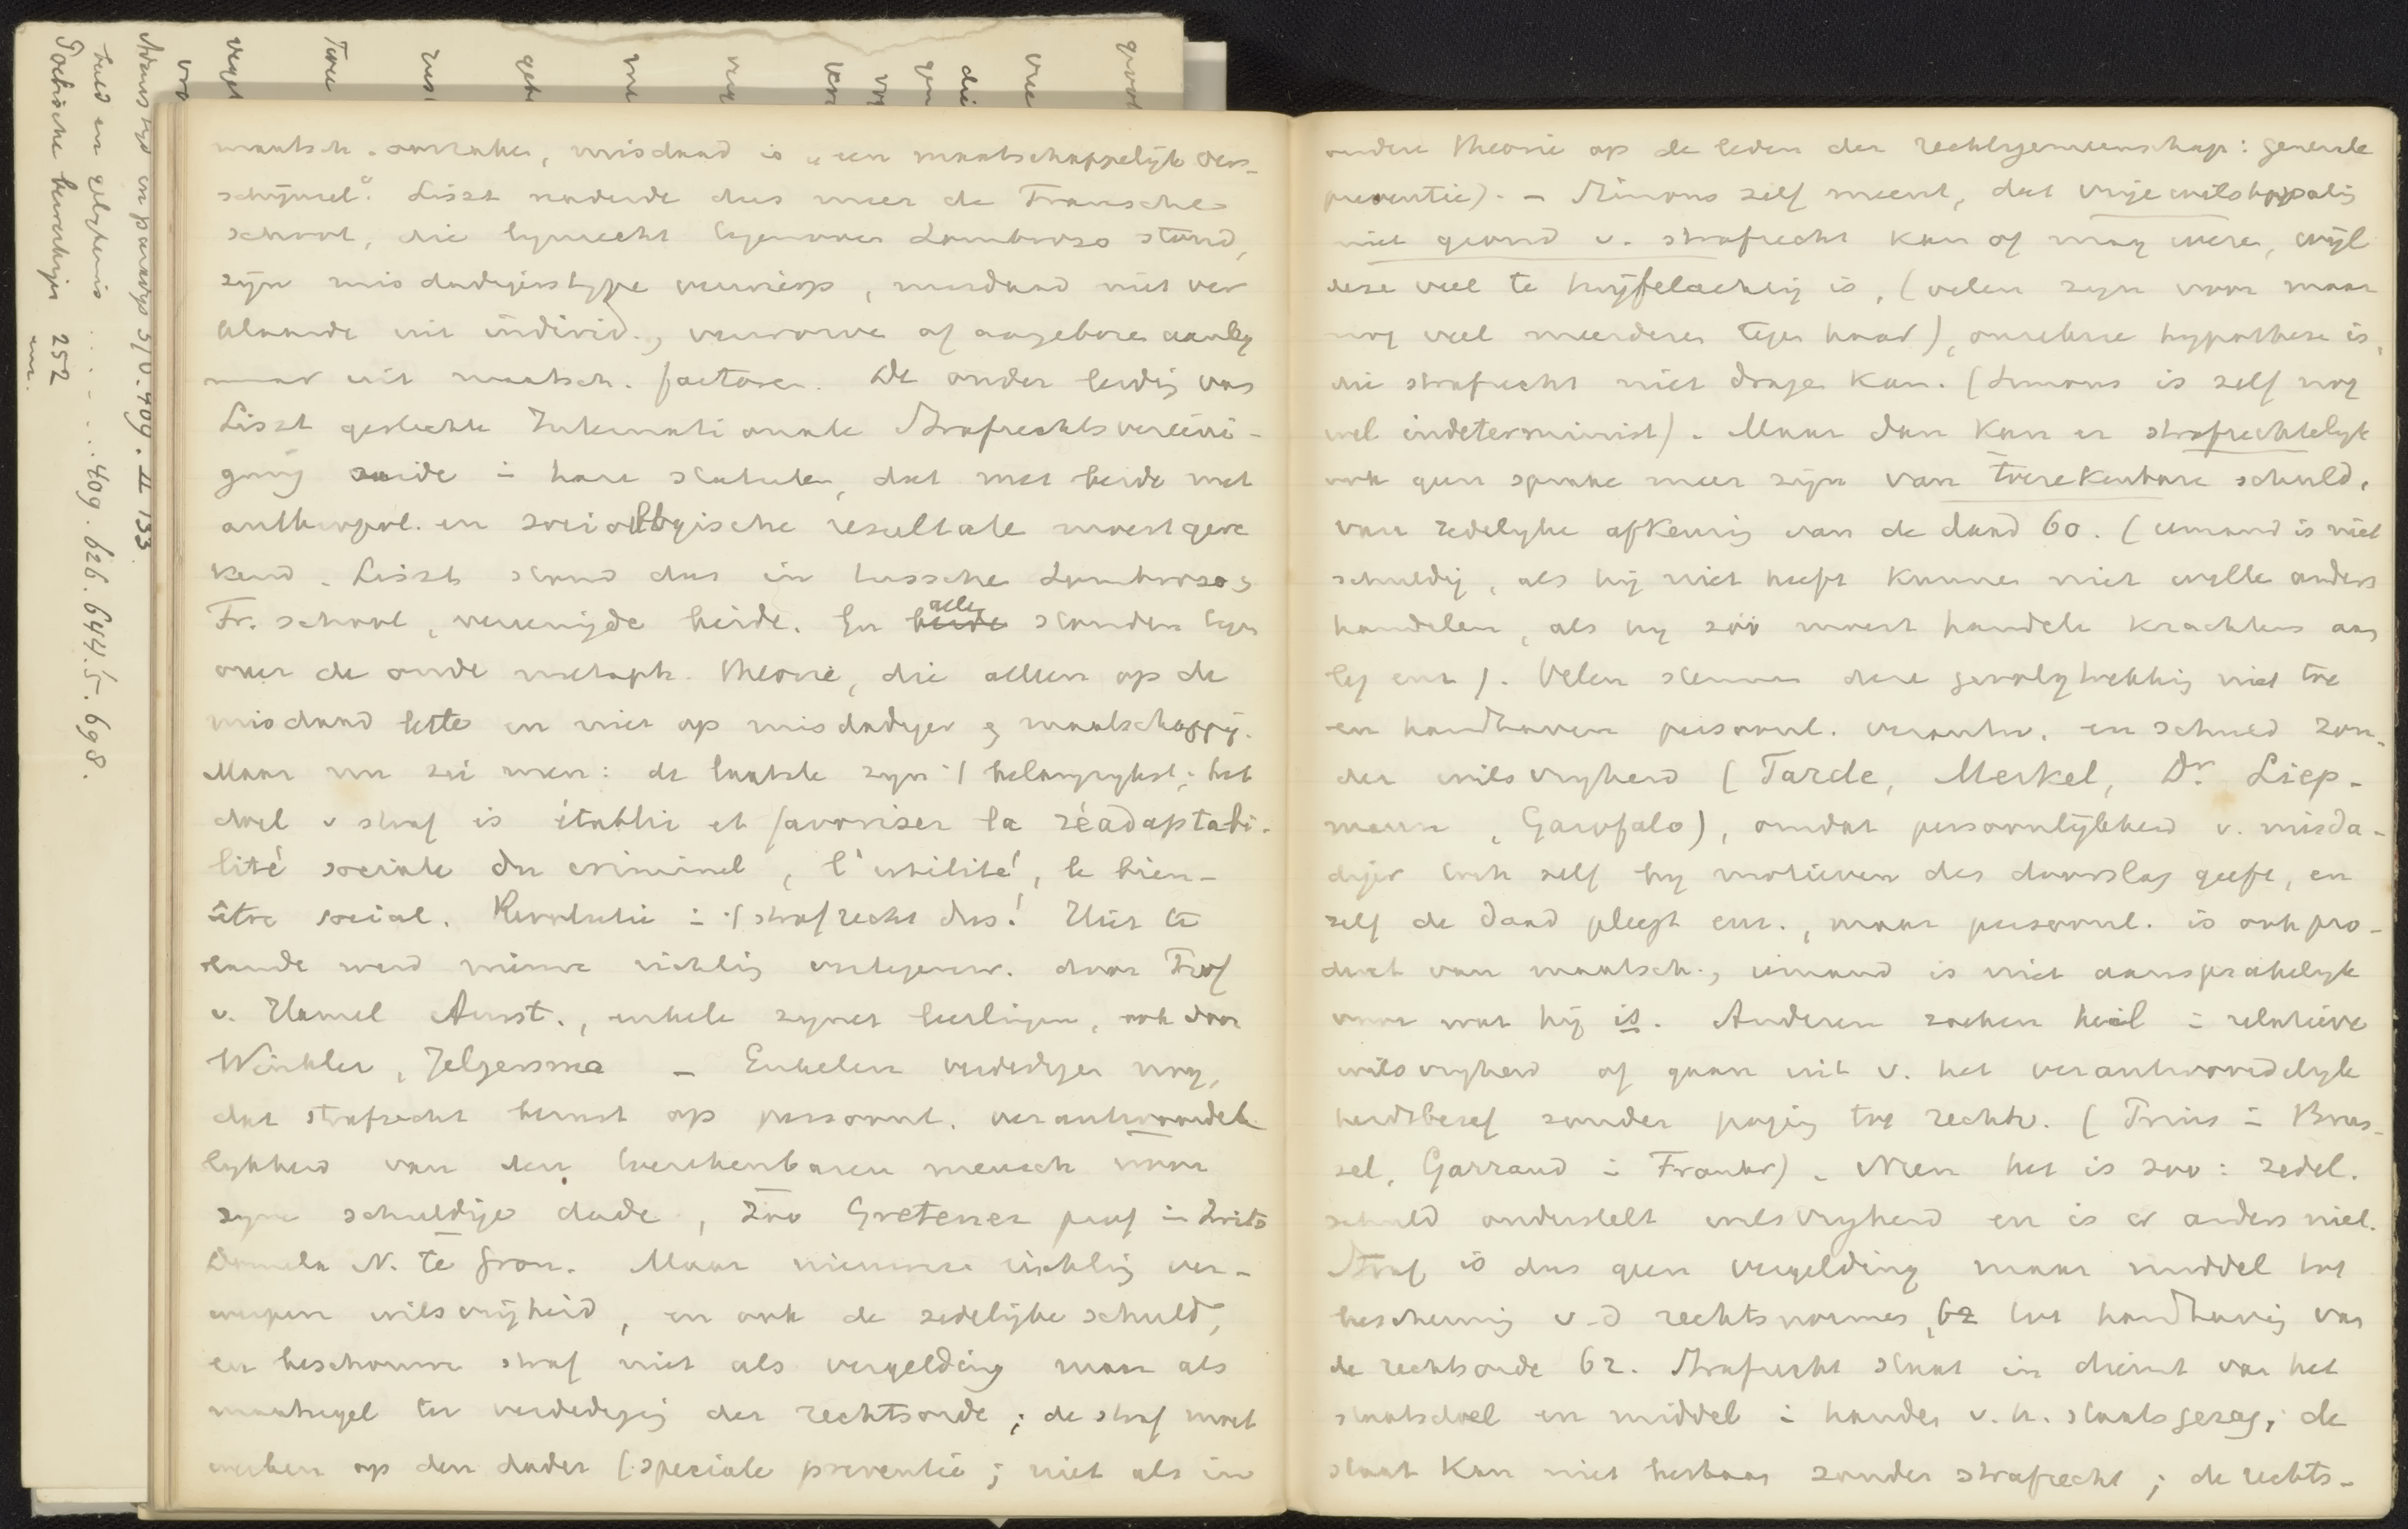 maatsch. oorzaken, misdaad is „een maatschappelijk ver-
schijnsel“. Liszt naderde dus meer de Fransche
school, die lijnrecht tegenover Lombroso stond,
zijn misdadigerstype verwierp, misdaad niet ver
klaarde uit individ., verworve of aangebore aanleg
maar uit maatsch. factoren. De onder leiding van
Liszt gestichte Internationale Strafrechtsvereeni-
ging zeide in hare statuten, dat met beide met
anthropol. en sociologische resultate moest gere
kend. Liszt stond dus in tussche Lombroso &
Fr. school, vereenigde beide. En beide alle stonden tegen
over de oude metaph. theorie, die alleen op de
misdaad lette en niet op misdadiger & maatschappij.
Maar nu zei men: de laatste zijn 't belangrijkst; het
doel v straf is établir et favoriser la réadaptabi-
lité sociale du criminel, l'utilité, le bien-
être social. Revolutie in 't strafrecht dus! Hier te
lande werd nieuwe richting vertegenw. door Prof
v. Hamel Amst., enkele zijner leerlingen, ook door
Winkler, Jelgersma – Enkelen verdedigen nog,
dat strafrecht berust op persoonl. verantwoorde
lijkheid van den toerekenbaren mensch voor
zijne schuldige dade, zoo Gretener prof in Zwits
Domela N. te Gron. Maar nieuwere richting ver-
werpen wilsvrijheid, en ook de zedelijke schuld,
en beschouwe straf niet als vergelding maar als
maatregel ter verdediging der rechtsorde; de straf moet
werken op den dader (speciale preventie; niet als in
andere theorie op de leden der rechtsgemeenschap: generale
preventie). – Simons zelf meent, dat vrije wilshypothesis
niet grond v. strafrecht kan of mag weze, wijl
deze veel te twijfelachtig is, (velen zijn voor maar
nog veel meerderen tegen haar), onzekere hypothese is,
die strafrecht niet drage kan. (Simons is zelf nog
wel indeterminist). Maar dan kan er strafrechtelijk
ook geen sprake meer zijn van toerekenbare schuld,
van zedelijke afkeuring van de daad 60. (iemand is niet
schuldig, als hij niet heeft kunnen niet wille anders
handelen, als hij zóó moest handele krachtens aan
leg enz). Velen stemmen deze gevolgtrekking niet toe
en handhaven persoonl. verantw. en schuld zon-
der wilsvrijheid (Tarde, Merkel, Dr. Liep-
mann, Garofalo), omdat persoonlijkheid v. misda-
diger toch zelf bij motieven den doorslag geeft, en
zelf de daad pleegt enz., maar persoonl. is ook pro-
duct van maatsch., iemand is niet aansprakelijk
voor wat hij is. Anderen zoeken heil in relatieve
wilsvrijheid of gaan uit v. het verantwoordelijk
heidsbesef zonder poging tot rechtv. (Prins in Brus-
sel, Garraud in Frankr). Neen het is zoo: zedel.
schuld onderstelt wilsvrijheid en is er anders niet.
Straf is dus geen vergelding maar middel tot
bescherming v.d rechtsnormes, 62 tot handhaving van
de rechtsorde 62. Strafrecht staat in dienst van het
staatsdoel en middel in handen v.h. staatsgezag; de
staat kan niet bestaan zonder strafrecht; de rechts-